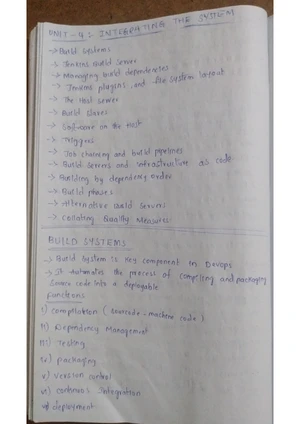 UNIT-4: INTEGRATING THE SYSTEM
→ Build Systems
→ Jenkins Build Server
→ Managing build dependencies
→ Jenkins plugins and file system layout
→ The Host Server
→ Build slaves
→ Software on the host
→ Triggers
→ Job chaining and build pipelines
→ Build servers and infrastructure as code
→ Building by dependency order
→ Build phases
→ Alternative build servers
→ Collating Quality Measures
BUILD SYSTEMS
→ Build system is key component in Devops
→ It automates the process of compiling and packaging
source code into a deployable
functions
i) compilation (sourcode - machine code)
ii) Dependency Management
iii) Testing
iv) packaging
v) version control
vi) continous integration
vii) deployment